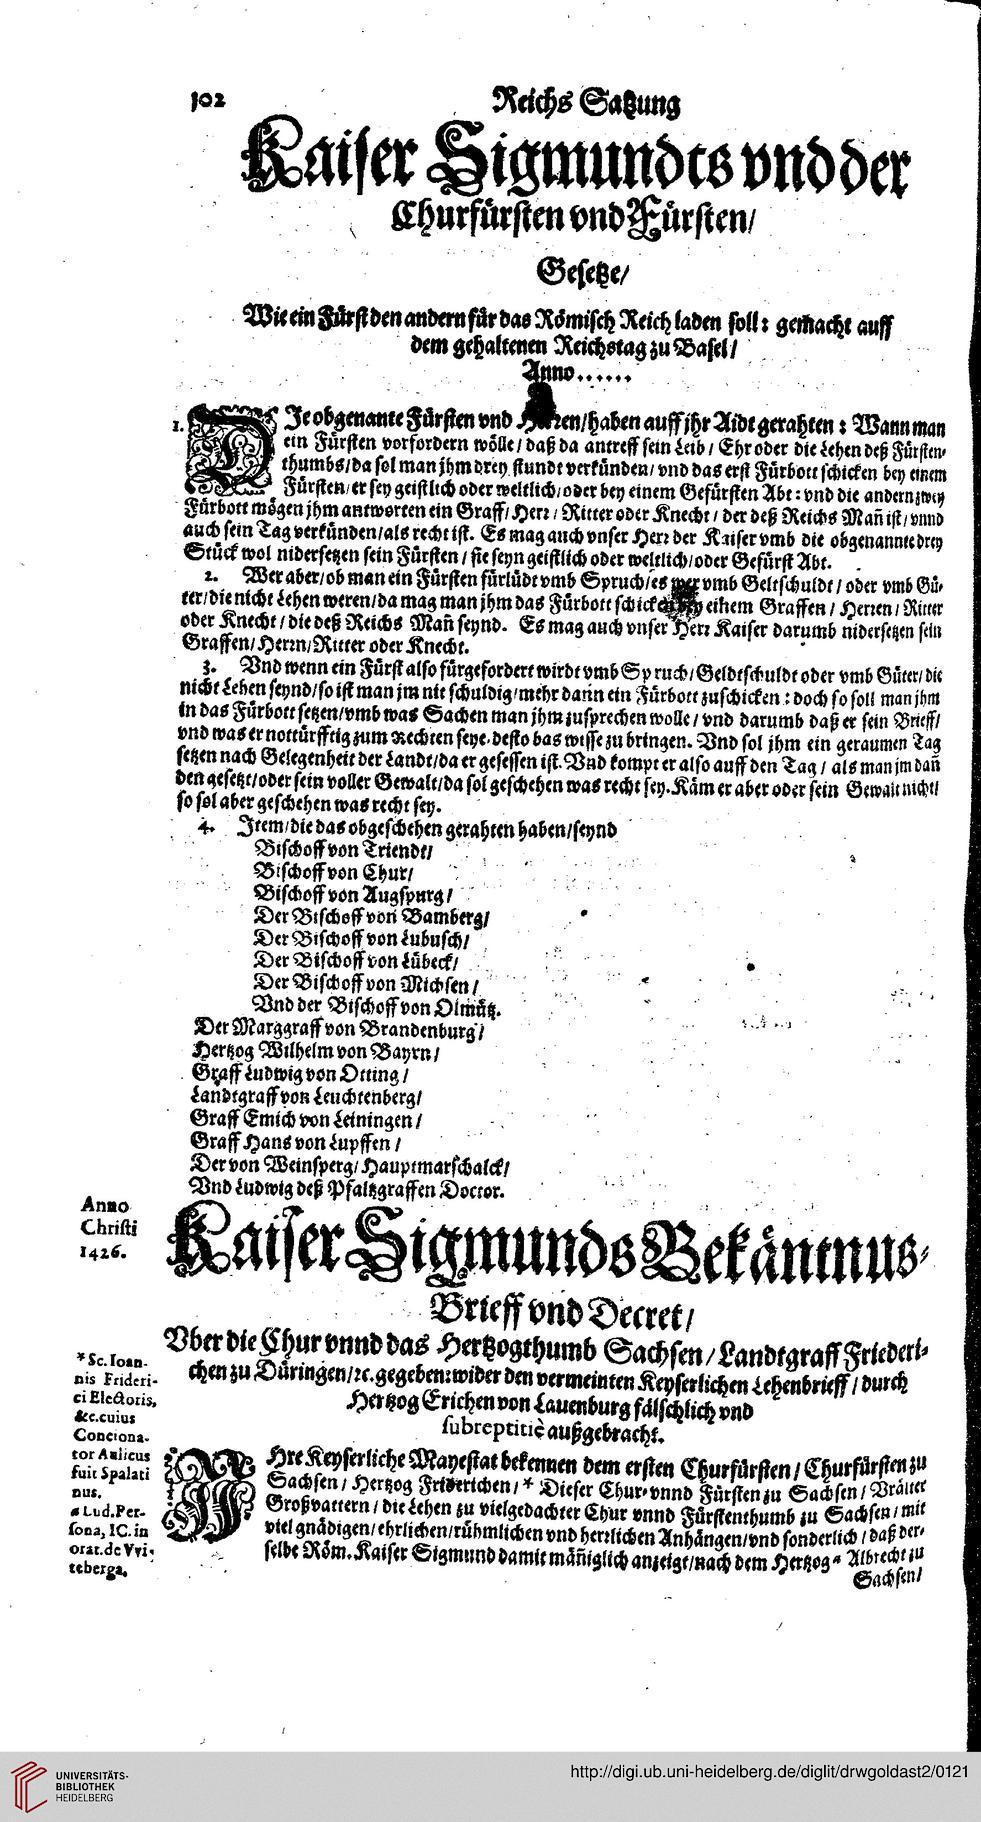 102 Reichs Satzung
Kaiser Sigmundts vnd der
Churfürsten vnd Fürsten/
Gesetze/
Wie ein Fürst den andern für das Römisch Reich laden soll: gemacht auff
dem gehaltenen Reichstag zu Basel/
Anno......
1. DIe obgenante Fürsten vnd Herren/haben auff jhr Aidt gerahten: Wann man
ein Fürsten vorfordern wölle/ daß da antreff sein Leib/ Ehr oder die Lehen deß Fürsten-
thumbs/da sol man jhm drey stundt verkünden/ vnd das erst Fürbott schicken bey einem
Fürsten/er sey geistlich oder weltlich/oder bey einem Gefürsten Abt: vnd die andern zwey
Fürbott mögen jhm antworten ein Graff/ Herr/ Ritter oder Knecht/ der deß Reichs Mañ ist/vnnd
auch sein Tag verkünden/als recht ist. Es mag auch vnser Herr der Kaiser vmb die obgenannte drey
Stück wol nidersetzen sein Fürsten/ sie seyn geistlich oder weltlich/oder Gefürst Abt.
2. Wer aber/ob man ein Fürsten fürlüdt vmb Spruch/es wer vmb Geltschuldt/ oder vmb Gü-
ter/die nicht Lehen weren/da mag man jhm das Fürbott schicken bey einem Graffen/ Herren/ Ritter
oder Knecht/die deß Reichs Mañ seynd. Es mag auch vnser Herr Kaiser darumb nidersetzen sein
Graffen/Herrn/Ritter oder Knecht.
3. Vnd wenn ein Fürst also fürgefordert wirdt vmb Spruch/Geldtschuldt oder vmb Güter/die
nicht Lehen seynd/so ist man jm nit schuldig/mehr dann ein Fürbott zuschicken: doch so soll man jhm
in das Fürbott setzen/vmb was Sachen man jhm zusprechen wolle/ vnd darumb daß er sein Brieff/
vnd was er nottürfftig zum Rechten seye/desto bas wisse zu bringen. Vnd sol jhm ein geraumen Tag
setzen nach Gelegenheit der Landt/da er gesessen ist. Vnd kompt er also auff den Tag/ als man jm dañ
den gesetzt/oder sein voller Gewalt/da sol geschehen was recht sey. Käm er aber oder sein Gewalt nicht/
so sol aber geschehen was recht sey.
4. Item/die das obgeschehen gerahten haben/seynd
Bischoff von Triendt/
Bischoff von Chur/
Bischoff von Augspurg/
Der Bischoff von Bamberg/
Der Bischoff von Lubusch/
Der Bischoff von Lübeck/
Der Bischoff von Michsen/
Vnd der Bischoff von Olmütz.
Der Marggraff von Brandenburg/
Hertzog Wilhelm von Bayrn/
Graff Ludwig von Otting/
Landtgraff von Leuchtenberg/
Graff Emich von Leiningen/
Graff Hans von Lupffen/
Der von Weinsperg/Hauptmarschalck/
Vnd Ludwig deß Pfaltzgraffen Doctor.
Anno
Christi
1426.
Kaiser Sigmunds Bekäntnus-
Brieff vnd Decret/
Vber die Chur vnnd das Hertzogthumb Sachsen/Landtgraff Friederi-
chen zu Düringen/ꝛc. gegeben: wider den vermeinten Keyserlichen Lehenbrieff/ durch
Hertzog Erichen von Lauenburg fälschlich vnd
subreptitiè außgebracht.
* Sc. Ioan-
nis Frideri-
ci Electoris,
&c. cuius
Conciona-
tor Aulicus
fuit Spalati
nus.
a Lud. Per-
sona, IC. in
orat. de Vvi-
teberga.
IHre Keyserliche Mayestat bekennen dem ersten Churfürsten/ Churfürsten zu
Sachsen/ Hertzog Friderichen/* Dieser Chur- vnnd Fürsten zu Sachsen/ Vrälter
Großvattern/ die Lehen zu vielgedachter Chur vnnd Fürstenthumb zu Sachsen/ mit
viel gnädigen/ehrlichen/rühmlichen vnd hertzlichen Anhängen/vnd sonderlich/ daß der-
selbe Röm. Kaiser Sigmund damit mäñiglich anzeigt/nach dem Hertzog a Albrecht zu
Sachsen/
UNIVERSITÄTS-
BIBLIOTHEK
HEIDELBERG
http://digi.ub.uni-heidelberg.de/diglit/drwgoldast2/0121